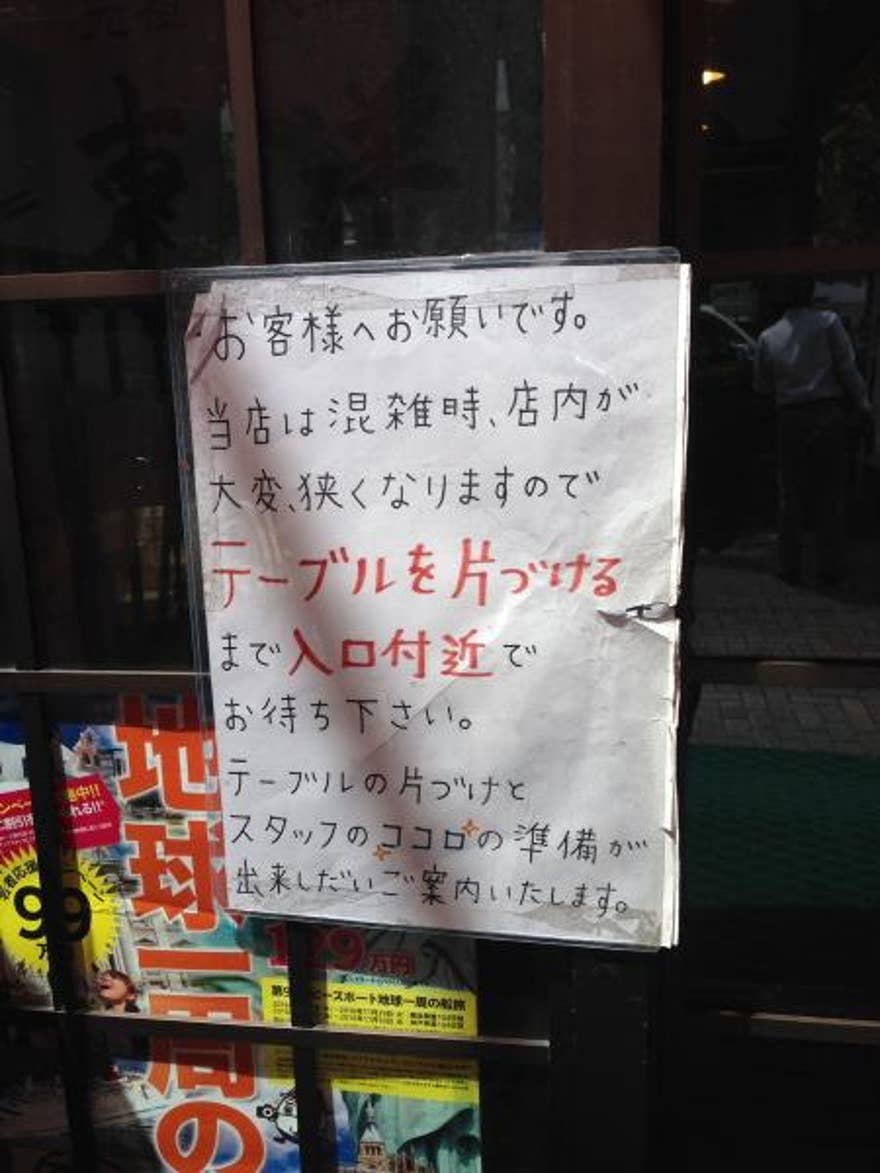 お客様へお願いです。
当店は混雑時、店内が
大変、狭くなりますので
テーブルを片づける
まで入口付近で
お待ち下さい。
テーブルの片づけと
スタッフのココロの準備が
出来しだいご案内いたします。
地球一周の
99
129万円
ピースボート地球一周の船旅